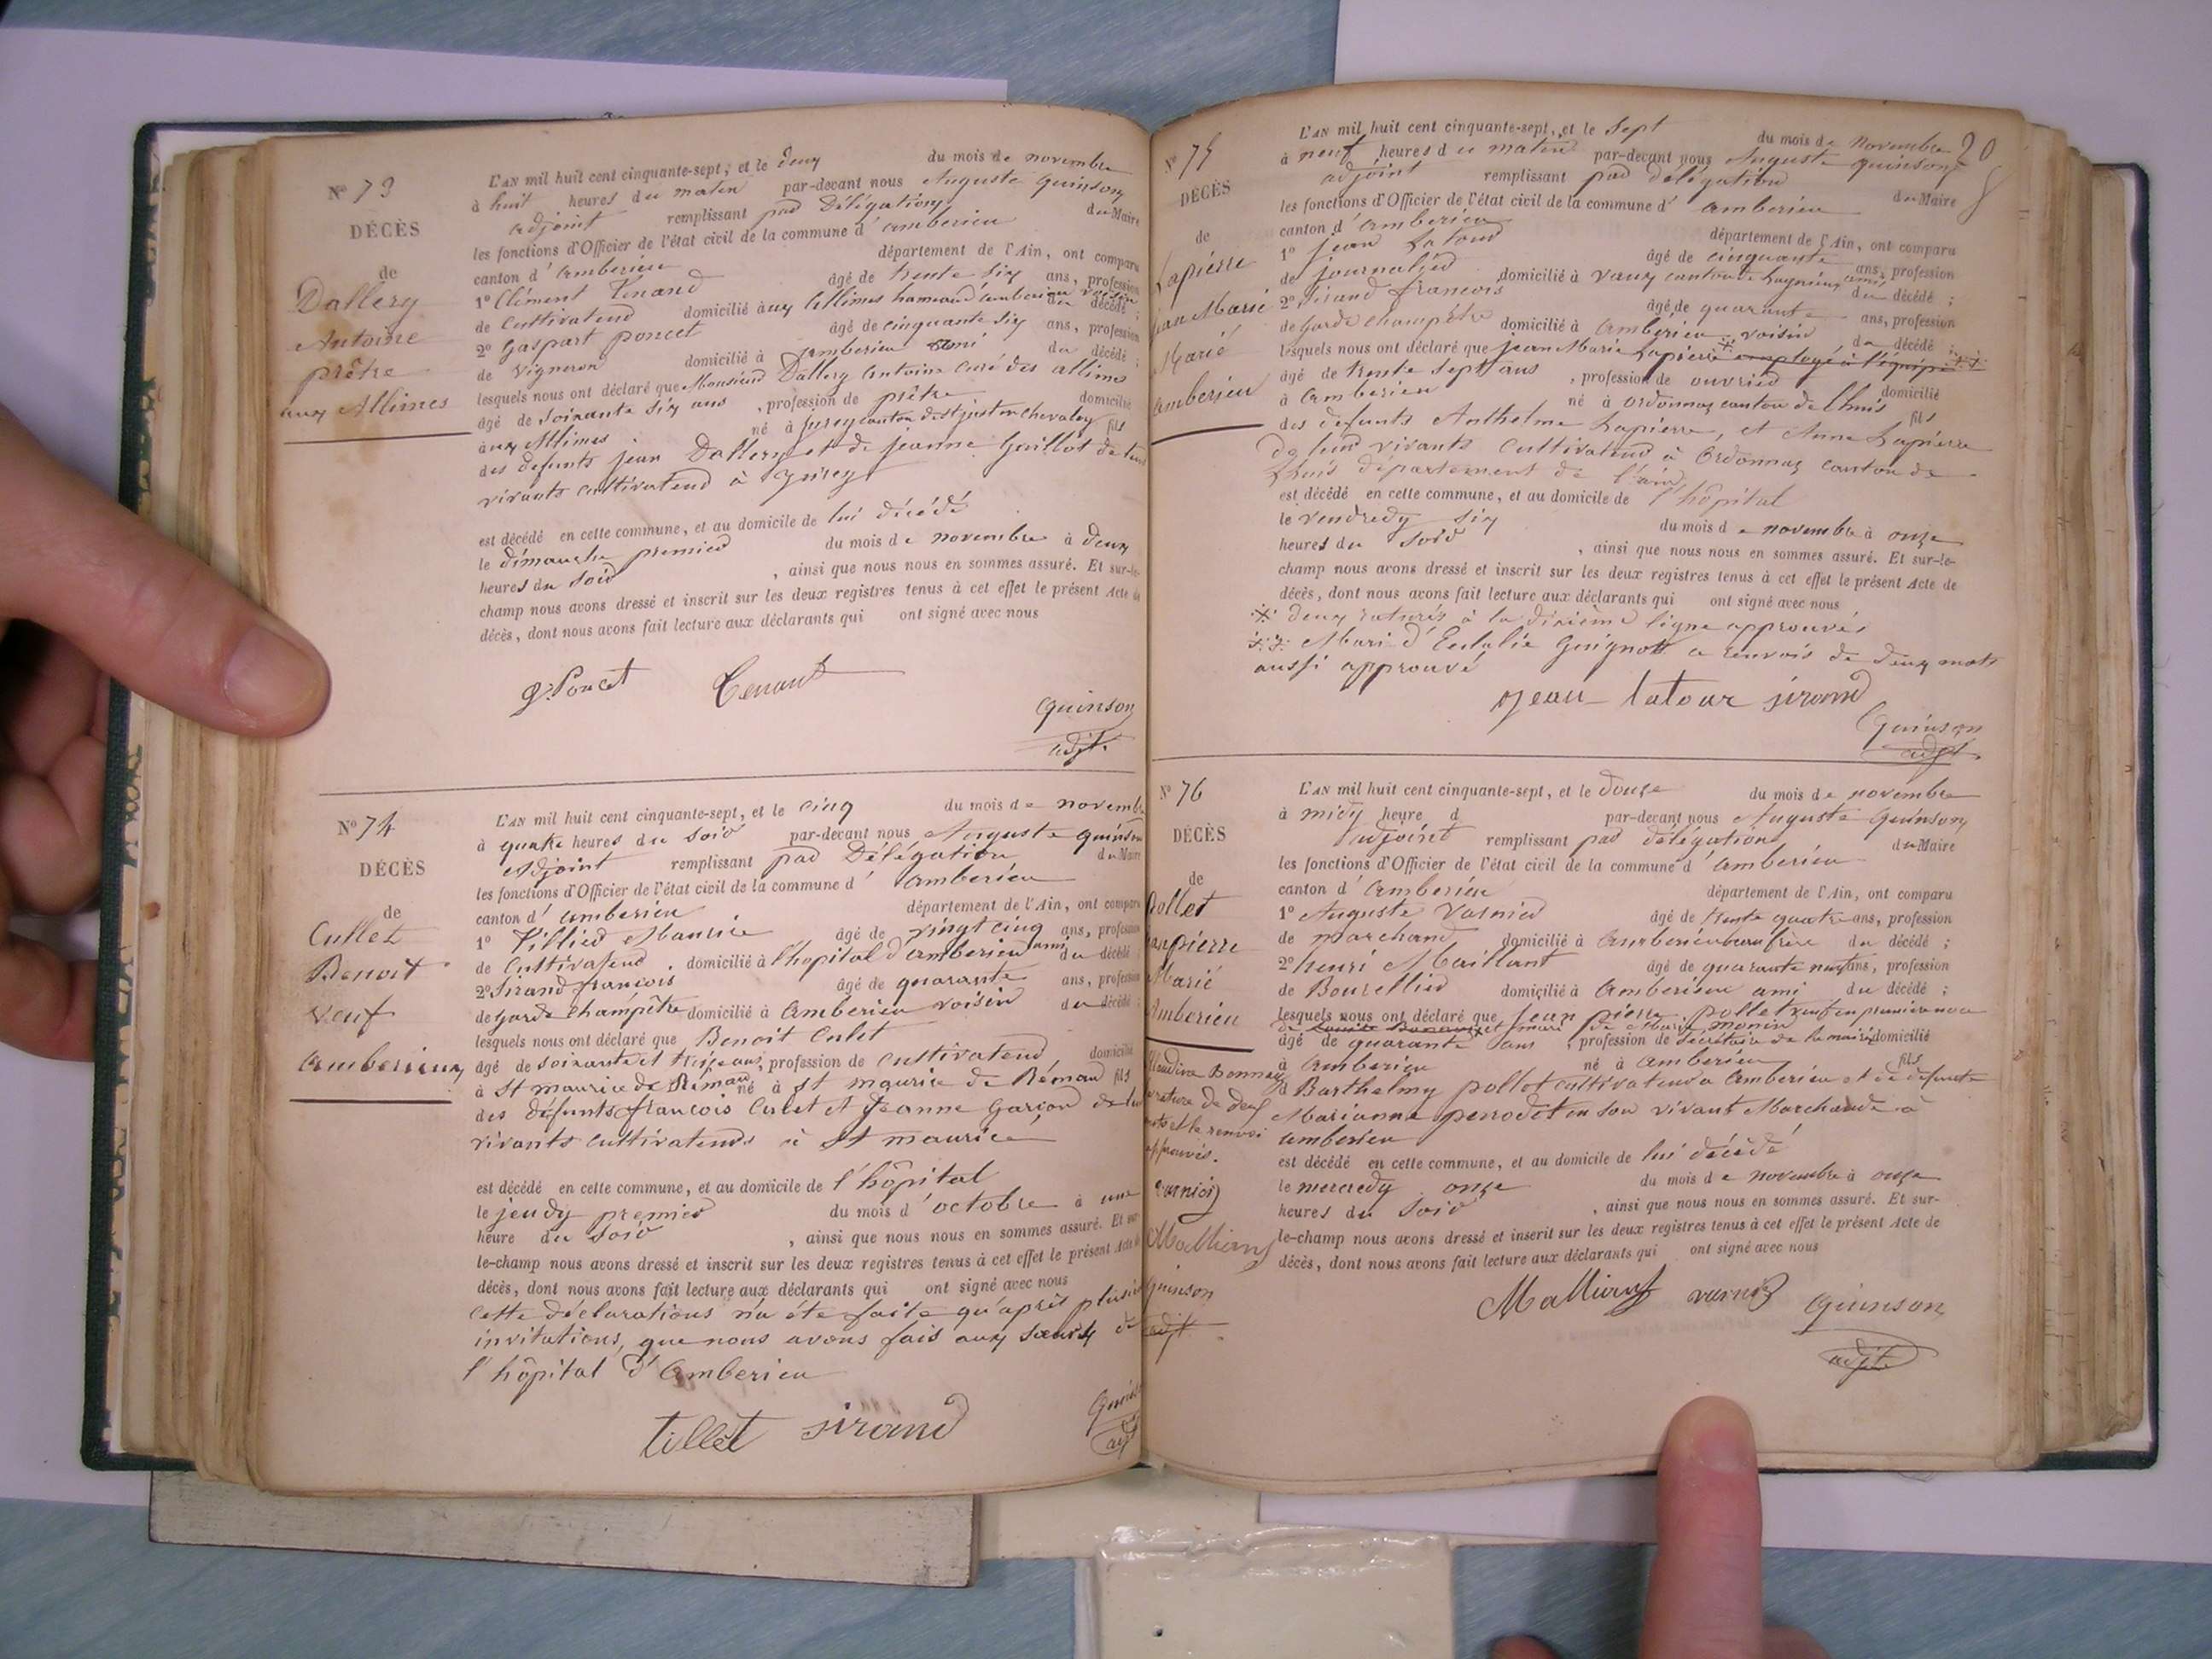 N° 73
DÉCÈS
de
Dallery
Antoine
prêtre
aux Allimes
L'AN mil huit cent cinquante-sept, et le deux du mois de novembre
à huit heures du matin par-devant nous Auguste Quinson
adjoint remplissant par Délégation du Maire
les fonctions d'Officier de l'état civil de la commune d' amberieu
canton d' amberieu département de l'Ain, ont comparu
1° Clément Tenand âgé de trente six ans, profession
de Cultivateur domicilié aux Allimes hameau d'amberieu voisin du décédé ;
2° Gaspart poncet âgé de cinquante six ans, profession
de Vigneron domicilié à amberieu ami du décédé ;
lesquels nous ont déclaré que Monsieur Dallery Antoine Curé des allimes
âgé de soixante six ans , profession de prêtre domicilié
aux Allimes né à canton de St just en chevaley fils
des defunts jean Dallery et de jeanne Guillot de leur
vivants cultivateurs à
est décédé en cette commune, et au domicile de lui décédé
le dimanche premier du mois de novembre à deux
heures du soir , ainsi que nous nous en sommes assuré. Et sur-le-
champ nous avons dressé et inscrit sur les deux registres tenus à cet effet le présent Acte de
décès, dont nous avons fait lecture aux déclarants qui ont signé avec nous
g. Poncet Tenand
Quinson
adjt.
N° 74
DÉCÈS
de
Cullet
Benoit
Veuf
Amberieux
L'AN mil huit cent cinquante-sept, et le cinq du mois de novembre
à quatre heures du soir par-devant nous Auguste Quinson
Adjoint remplissant par Délégation du Maire
les fonctions d'Officier de l'état civil de la commune d' amberieu
canton d' amberieu département de l'Ain, ont comparu
1° Maurice âgé de vingt cinq ans, profession
de Cultivateur domicilié à l'hopital d'amberieu ami du décédé ;
2° Sirand francois âgé de quarante ans, profession
de Garde champêtre domicilié à Amberieu voisin du décédé ;
lesquels nous ont déclaré que Benoit Culet
âgé de soixante et treize ans, profession de Cultivateur, domicilié
à St maurice de Rémand né à St maurice de Rémand fils
des défunts francois Culet et Jeanne Garçon de leur
vivants cultivateurs à St maurice
est décédé en cette commune, et au domicile de l'hôpital
le jeudy premier du mois d'octobre à une
heure du soir , ainsi que nous nous en sommes assuré. Et sur-
le-champ nous avons dressé et inscrit sur les deux registres tenus à cet effet le présent Acte de
décès, dont nous avons fait lecture aux déclarants qui ont signé avec nous
Cette déclarations n'a éte faite qu'aprés plusieu
invitations, que nous avons fais aux sœurs de
l'hôpital d'Amberieu
tillet sirand
Quinson
adjt
20
N° 75
DÉCÈS
de
Lapierre
jean Marie
Marié
amberieu
L'AN mil huit cent cinquante-sept, et le Sept du mois de novembre
à neuf heures du matin par-devant nous Auguste Quinson
adjoint remplissant par délégation du Maire
les fonctions d'Officier de l'état civil de la commune d' amberieu
canton d' amberieu département de l'Ain, ont comparu
1° jean Latour âgé de cinquante ans, profession
de journalier domicilié à Vaux canton de Lagnieu ami du décédé ;
2° Sirand francois âgé de quarante ans, profession
de Garde champêtre domicilié à Amberieu voisin du décédé ;
lesquels nous ont déclaré que jean Marie Lapierre employé à l'équipe
âgé de trente sept ans , profession de ouvrier domicilié
à Amberieu né à Ordonnaz canton de Lhuis fils
des defunts Anthelme Lapierre, et Anne Lapierre
De leur vivants Cultivateur à Ordonnaz canton de
Lhuis département de l'ain
est décédé en cette commune, et au domicile de l'hôpital
le vendredy six du mois de novembre à onze
heures du soir , ainsi que nous nous en sommes assuré. Et sur-le-
champ nous avons dressé et inscrit sur les deux registres tenus à cet effet le présent Acte de
décès, dont nous avons fait lecture aux déclarants qui ont signé avec nous
deux raturés à la dixième ligne approuvés
Mari d'Eulalie Guignott a renvois de deux mots
aussi approuvé
jean latour sirand
Quinson
adjt
N° 76
DÉCÈS
de
Pollet
jean pierre
Marié
Amberieu
Claudine Bonnaz
rature de deux
mots et le renvoi
approuvés.
varnier
Malliant
Quinson
adjt
L'AN mil huit cent cinquante-sept, et le douze du mois de novembre
à midy heure d par-devant nous Auguste Quinson
adjoint remplissant par délégation du Maire
les fonctions d'Officier de l'état civil de la commune d' amberieu
canton d' Amberieu département de l'Ain, ont comparu
1° Auguste Varnier âgé de trente quatre ans, profession
de marchand domicilié à Amberieu beau frère du décédé ;
2° henri Maillant âgé de quarante neuf ans, profession
de Bourellier domicilié à Amberieu ami du décédé ;
lesquels nous ont déclaré que Jean pierre pollet veuf en premiere noce
de et mari de Marie monin
âgé de quarante ans , profession de secrétaire de la mairie domicilié
à Amberieu né à amberieu fils
de Barthelmy pollet cultivateur a Amberieu et de defunte
Marianne perrodet en son vivant Marchande à
amberieu
est décédé en cette commune, et au domicile de lui décédé
le mercredy onze du mois de novembre à onze
heures du soir , ainsi que nous nous en sommes assuré. Et sur-
le-champ nous avons dressé et inscrit sur les deux registres tenus à cet effet le présent Acte de
décès, dont nous avons fait lecture aux déclarants qui ont signé avec nous
Malliant varnier Quinson
adjt